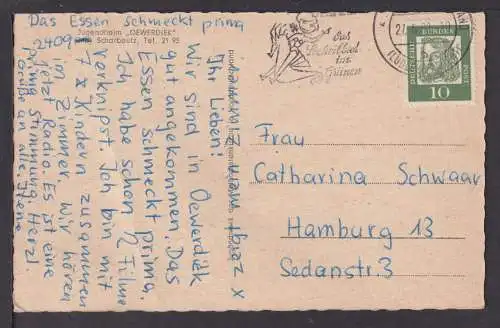 Das Essen schmeckt prima
Jugendheim "OEWERDIEK"
2409 Scharbeutz, Tel. 21 95
Ihr Lieben!
Wir sind in Oewerdiek
gut angekommen. Das
Essen schmeckt prima.
Ich habe schon 1/2 Filme
verknipst. Ich bin mit
7 x Kindern zusammen
im Zimmer. Wir hören
jetzt Radio. Es ist eine
prima Stimmung. Herzl.
Grüße an alle,
Das
im
Grünen
DEUTSCHE
BUNDES
POST
10
Frau
Catharina Schwaar
Hamburg 13
Sedanstr. 3